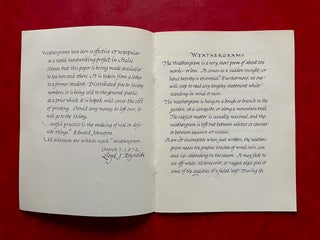 Weathergrams have been so effective & so popular
as a rapid handwriting project in Italic
classes that this paper is being made available
to teachers and others. It is taken from a letter
to a former student. Distributed free to Society
members, it is being sold to the general public
at a price which, it is hoped, will cover the cost
of printing. Should any money be left over, it
will go to the Society.
"... useful practice is the making of real & defi-
nite things." Edward Johnston.
"All distances are written reach." Weathergram
March 7, 1972
Lloyd J. Reynolds
WEATHERGRAMS
The Weathergram is a very short poem of about ten
words - or less. It comes as a sudden insight, &
hence brevity is essential. Furthermore, no one
will stop to read any lengthy statement while
standing in mud or rain.
The Weathergram is hung on a bough or branch in the
garden, at a campsite, or along a mountain trail.
The subject matter is usually seasonal, and the
weathergram is left out between solstice & equinox
or between equinox & solstice.
Raw & incomplete when just written, the weather-
gram needs the prophetic touches of wind, rain, sun
and ice, depending on the season. It may fade to
an off-white. Old bone ash or rugged edges give it
some of the qualities of a faded leaf. During its